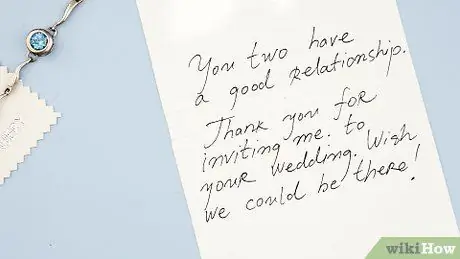 You two have
a good relationship.
Thank you for
inviting me to
your wedding. Wish
we could be there!
wikiHow